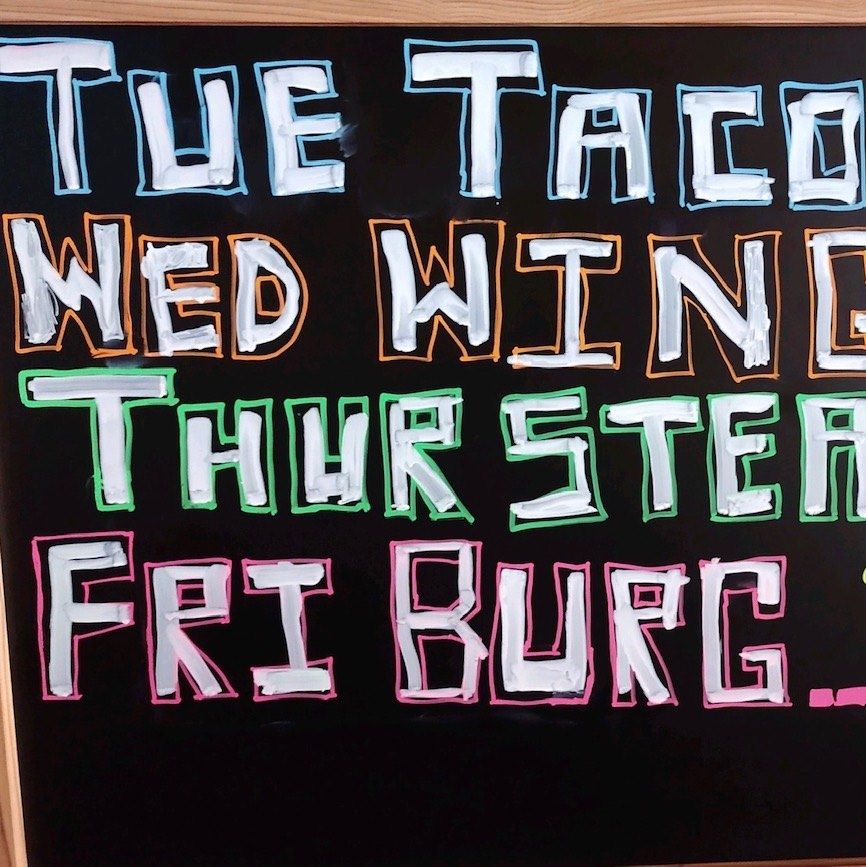 TUE TACO
WED WING
THUR STEA
FRI BURG